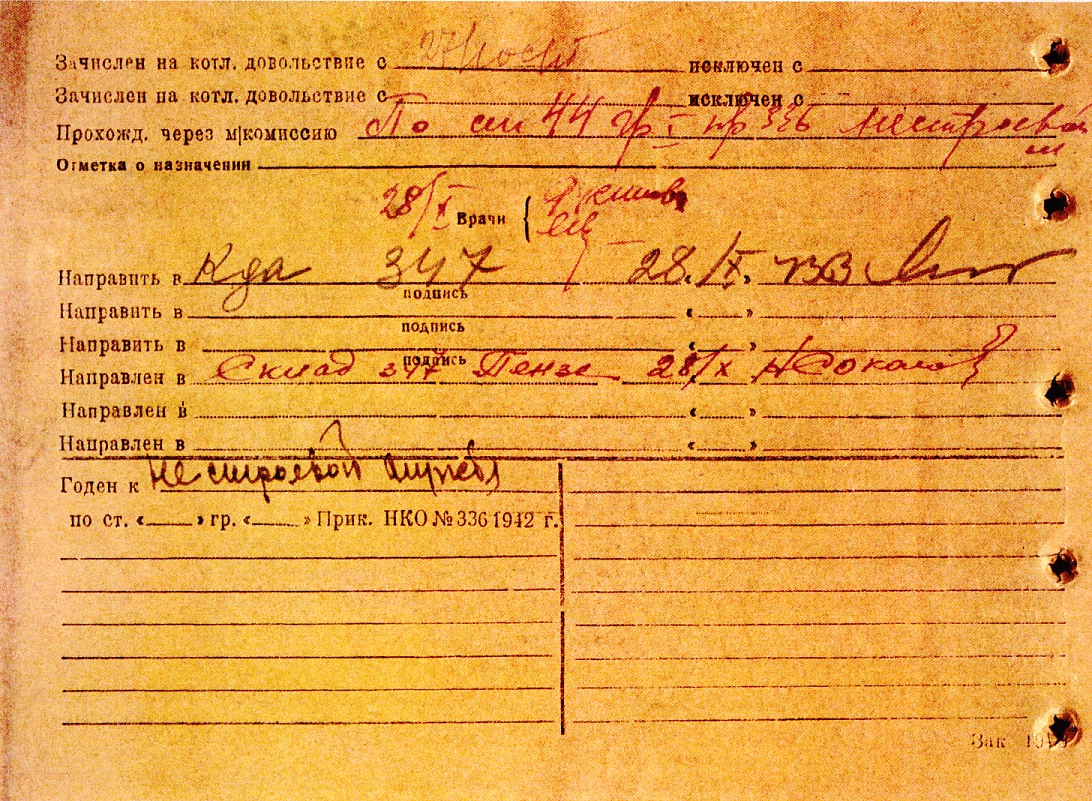 Зачислен на котл. довольствие с 27 исключен с
Зачислен на котл. довольствие с исключен с
Прохожд. через м|комиссию По ст 44 гр I пр 336 нестроевой
Отметка о назначении
28/X Врачи {
Направить в 347 28 /X » ВВ
подпись
Направить в « »
подпись
Направить в « »
подпись
Направлен в Склад 347 Пензе 28/X Соколов
Направлен в « »
Направлен в « »
Годен к нестроевой службе
по ст. « » гр. « » Прик. НКО № 336 1942 г.
Зак